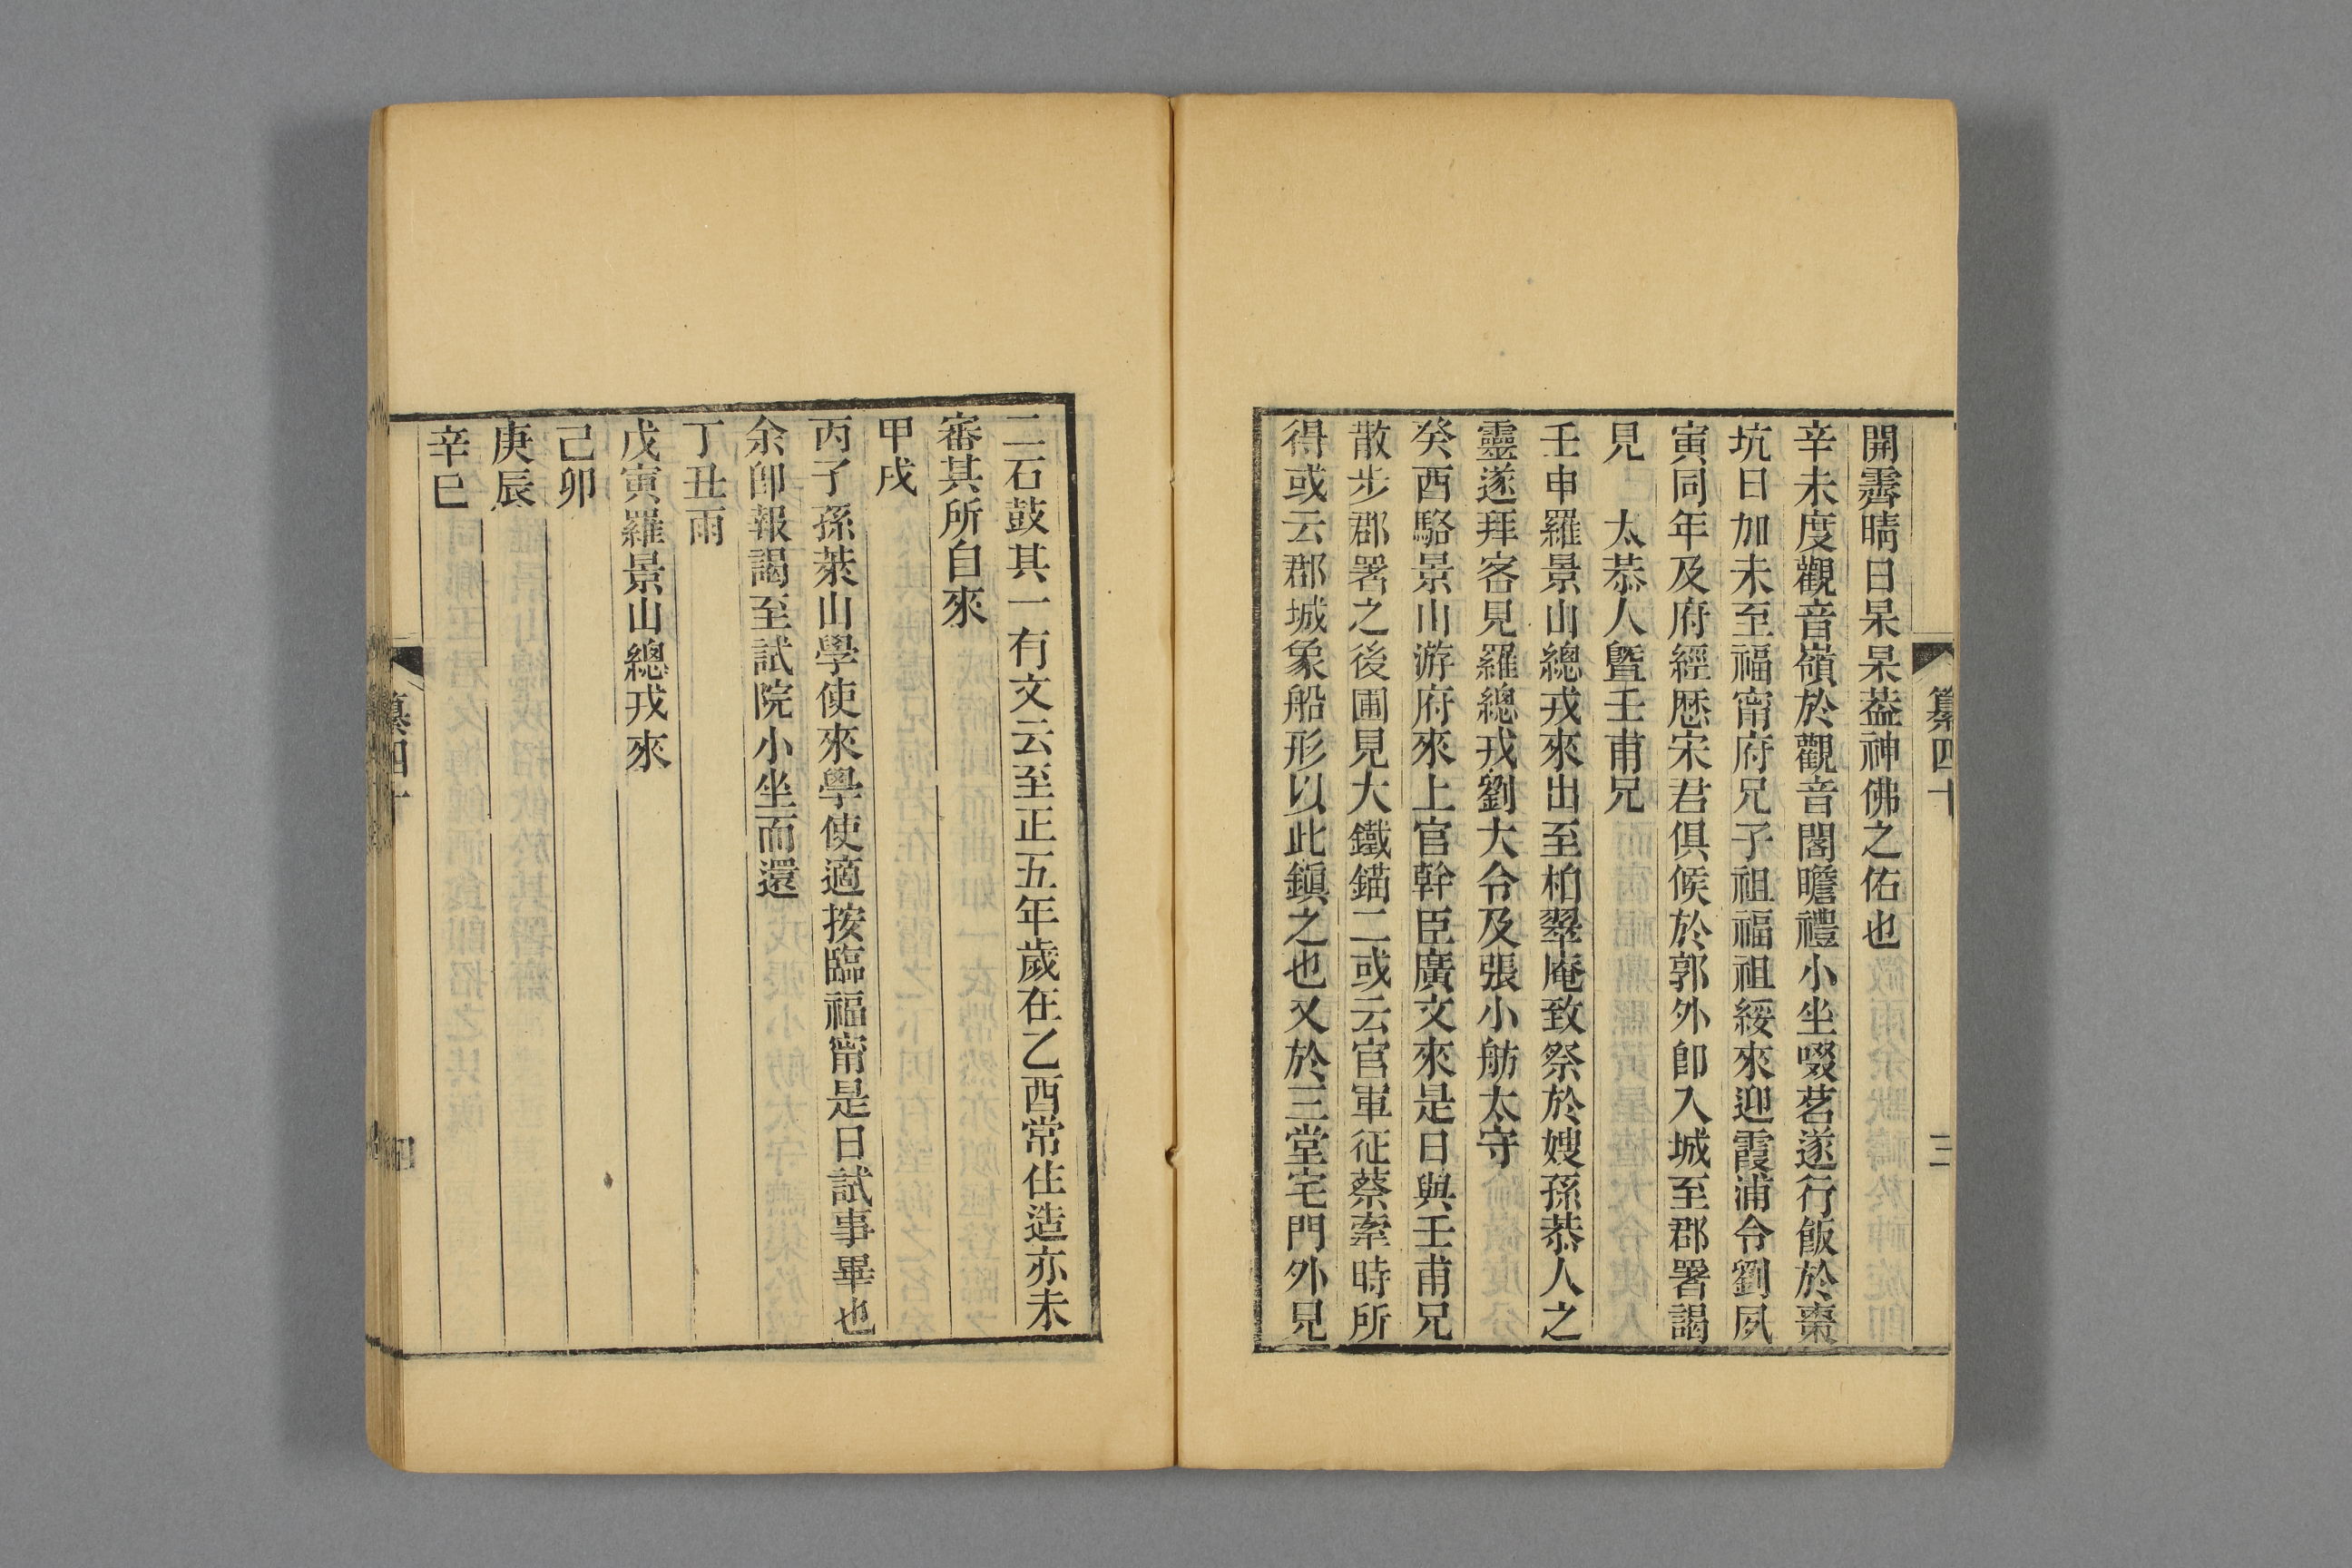 纂四十
三
開霽晴日杲杲葢神佛之佑也
辛未度觀音嶺於觀音閣瞻禮小坐啜茗遂行飯於棗
坑日加未至福甯府兄子祖福祖綏來迎霞浦令劉夙
寅同年及府經厯宋君俱候於郭外卽入城至郡署謁
見　太恭人曁壬甫兄
壬申羅景山總戎來出至柏翠庵致祭於嫂孫恭人之
靈遂拜客見羅總戎劉大令及張小舫太守
癸酉駱景山游府來上官幹臣廣文來是日與壬甫兄
散步郡署之後圃見大鐵錨二或云官軍征蔡牽時所
得或云郡城象船形以此鎭之也又於三堂宅門外見
二石鼓其一有文云至正五年歲在乙酉常住造亦未
審其所自來
甲戌
丙子孫萊山學使來學使適按臨福甯是日試事畢也
余卽報謁至試院小坐而還
丁丑雨
戊寅羅景山總戎來
己卯
庚辰
辛巳
纂四十